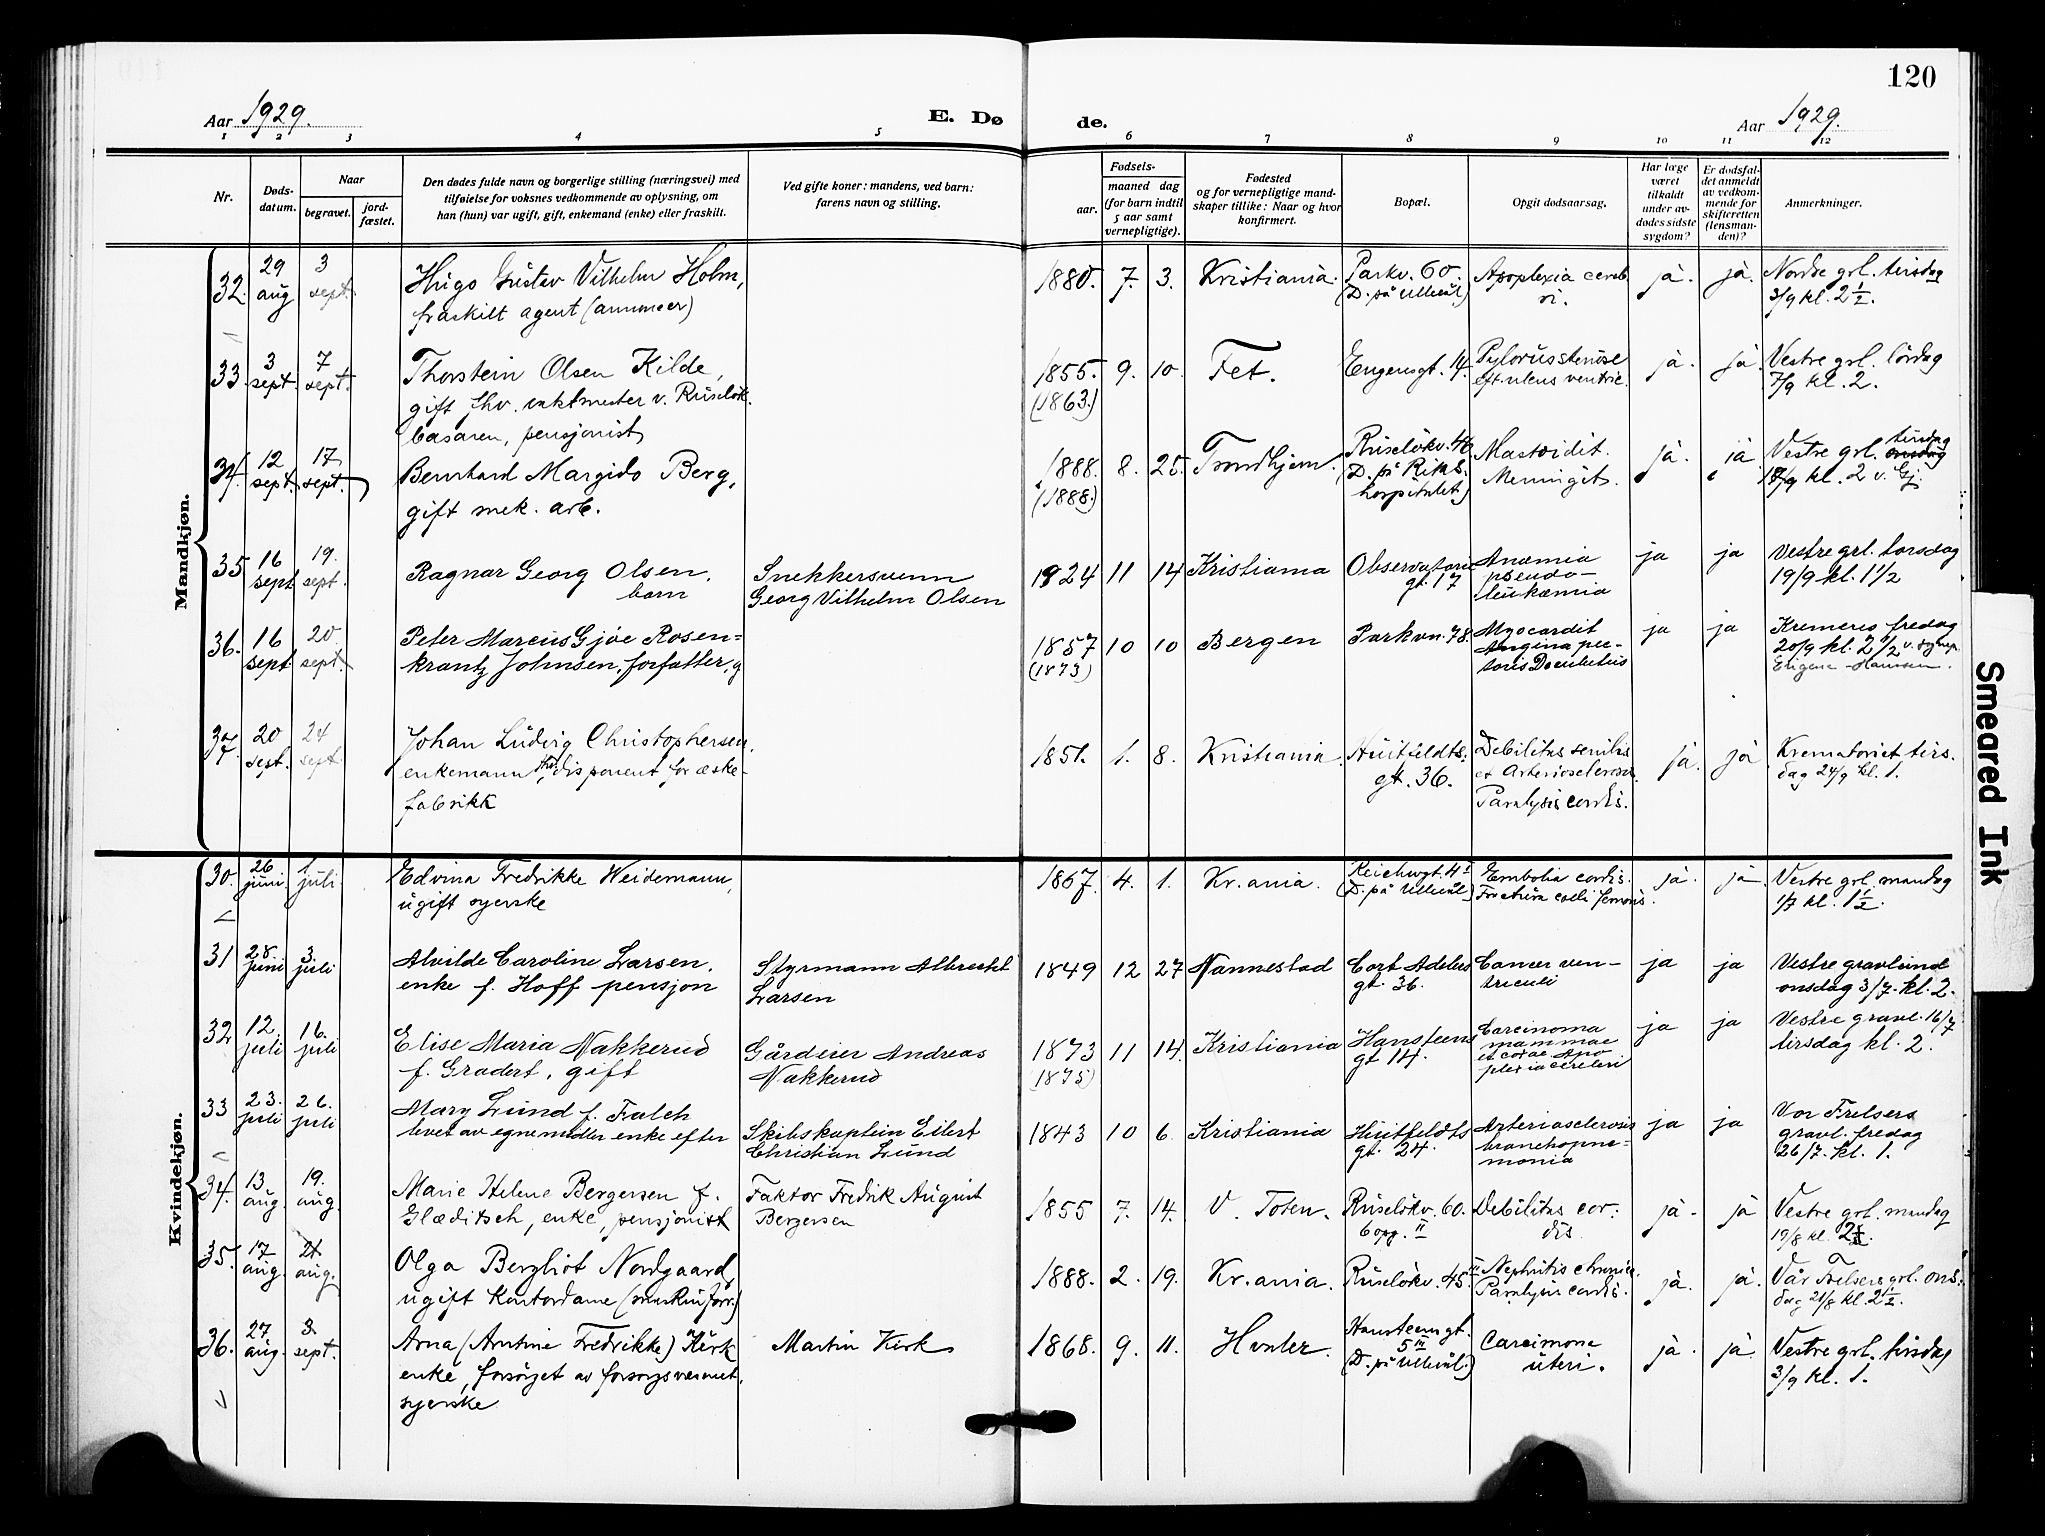 120
Aar 1929.
E. Dø
de.
Aar 1929.
1 2 3 4 5 6 7 8 9 10 11 12
Nr.
Døds-
datum.
Naar
begravet.
jord-
fæstet.
Den dødes fulde navn og borgerlige stilling (næringsvei) med
tilføielse for voksnes vedkommende av oplysning, om
han (hun) var ugift, gift, enkemand (enke) eller fraskilt.
Ved gifte koner: mandens, ved barn:
farens navn og stilling.
Fødsels-
aar.
maaned dag
(for barn indtil
5 aar samt
vernepligtige).
Fødested
og for vernepligtige mand-
skaper tillike: Naar og hvor
konfirmert.
Bopæl.
Opgit dødsaarsag.
Har læge
været
tilkaldt
under av-
dødes sidste
sygdom?
Er dødsfal-
det anmeldt
av vedkom-
mende for
skifteretten
(lensman-
den)?
Anmerkninger.
Mandkjøn.
32. 29 aug 3 sept.
Hugo Gustav Vilhelm Holm,
fraskilt agent (annonser)
1880. 7. 3. Kristiania.
Parkv. 60.
(D. på Ullevål)
Apoplexia cereb
ri.
ja. ja.
Nordre grl. tirsdag
3/9 kl. 2 1/2.
33 3 sept. 7 sept.
Thorstein Olsen Kilde,
gift fhv. vaktmester v. Ruseløk.
basaren, pensjonist
1855. 9. 10. Fet.
(1863.)
Engensgt. 14.
Pylorusstenose
eft. ulcus ventric.
ja. ja.
Vestre grl. lördag
7/9 kl. 2.
34. 12 sept. 17 sept.
Bernhard Margido Berg,
gift mek. arb.
1888. 8. 25. Trondhjem.
(1888.)
Ruselökv. 46.
(D. på Riks
hospitalet)
Mastoidit.
Meningit.
ja. ja
Vestre grl. tirsdag
onsdag
17/9 kl. 2 v. Gj.
35 16 sept 19. sept.
Ragnar Georg Olsen,
barn
Snekkersvenn
Georg Vilhelm Olsen
1924 11 14 Kristiania
Observatorie
gt. 17
Anæmia
pseudo-
leukæmia
ja ja
Vestre grl. torsdag
19/9 kl. 1 1/2
36. 16 sept 20 sept.
Peter Marcus Gjøe Rosen=
krantz Johnsen, forfatter, g
1857 10 10 Bergen
(1873)
Parkvn. 78.
Myocardit
Angina pec-
toris Decubitus
ja ja
Kremeres fredag
20/9 kl. 2 1/2 v. sognepr.
Eugene Hanssen.
37 20 sept. 24 sept.
Johan Ludvig Christophersen,
enkemann fhv. disponent for æske-
fabrikk
1851. 1. 8. Kristiania.
Huitfeldts.
gt. 36.
Debilitas senilis
et Arteriosclerosis.
Paralysis cordis.
ja. ja
Krematoriet tirs.
dag 24/9 kl. 1.
Kvindekjøn.
30. 26 juni 1. juli
Edvina Fredrikke Weidemann,
ugift syerske
1867. 4. 1. Kr.ania.
Reichwgt. 4 I
(D. på Ullevål)
Embolia cordis.
Fractura colli femoris.
ja. ja
Vestre grl. mandag
1/7 kl. 1 1/2.
31 28 juni 3. juli
Alvilde Caroline Larsen,
enke f. Hoff pensjon
Styrmann Albrecht
Larsen
1849 12 27 Nannestad
Cort Adelers
gt. 36.
Cancer ven-
triculi
ja ja
Vestre gravlund
onsdag 3/7. kl. 2.
32 12. juli 16. juli
Elise Maria Nakkerud
f. Gradert, gift
Gårdeier Andreas
Nakkerud
1873 11 14. Kristiania
(1875)
Hansteens
gt 14.
Carcinoma
mammae
et coxae Apo
plexia cerebri
ja ja
Vestre gravl. 16/7
tirsdag kl. 2.
33 23. juli 26. juli
Mary Lund f. Falch
levet av egne midler enke efter
Skibskaptein Eilert
Christian Lund
1843 10 6. Kristiania
Huitfeldts
gt. 24.
Arteriosclerosis
bronchopne-
monia
ja ja
Vor Frelsers
gravl. fredag
26/7. kl. 1.
34. 13. aug. 19. aug.
Marie Helene Bergersen f.
Glæditsch, enke, pensjonist
Faktor Fredrik August
Bergersen
1855 7. 14. V. Toten.
Ruselökv. 60.
6 opg. II
Debilitas cor-
dis
ja. ja
Vestre grl. mandag
19/8 kl. 2
35. 17 aug. 21 aug.
Olga Bergliot Nordgaard,
ugift kontordame (maskinforr.)
1888. 2. 19. Kr.ania.
Ruselökv. 45 II
Nephritis chronica.
Paralysis cordis.
ja. ja.
Vår Frelsers grl. ons.
dag 21/8 kl. 2 1/2.
36. 27 aug. 3. sept.
Arna (Arntine Fredrikke) Kirk
enke, forsørget av forsorgsvesenet,
syerske
Martin Kirk
1868. 9. 11. Hvaler.
Hansteensgt.
5 III
(D. på Ullevål.)
Carcinoma
uteri.
ja. ja.
Vestre grl. tirsdag
3/9 kl. 1.
Smeared Ink